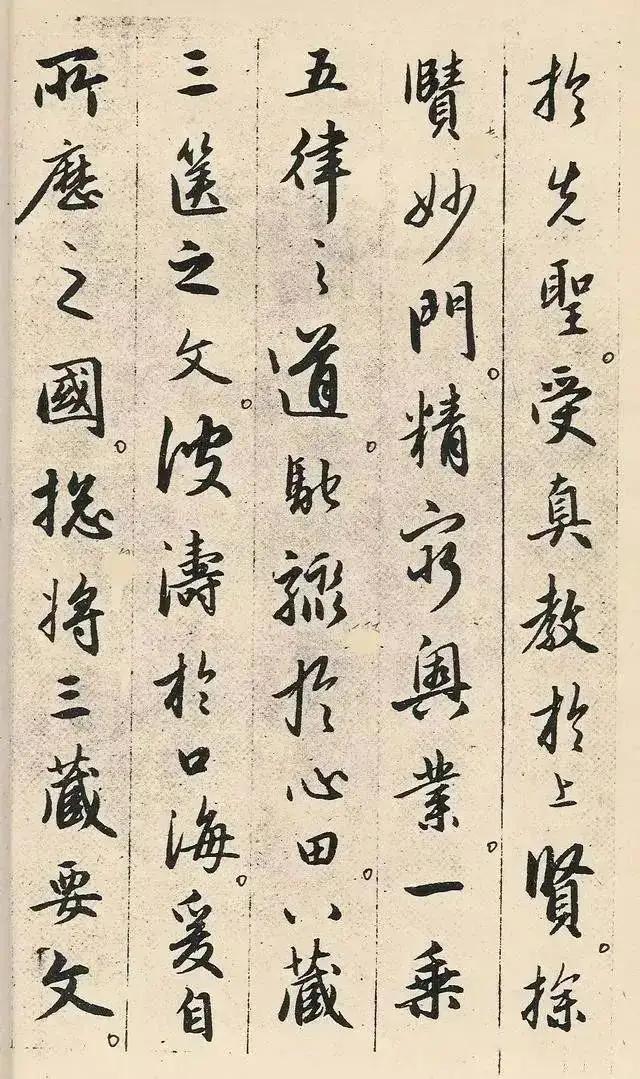 於先聖。受真教於上賢。探
賾妙門。精窮奧業。一乘
五律之道。馳驟於心田。八藏
三篋之文。波濤於口海。爰自
所歷之國。揔將三藏要文。